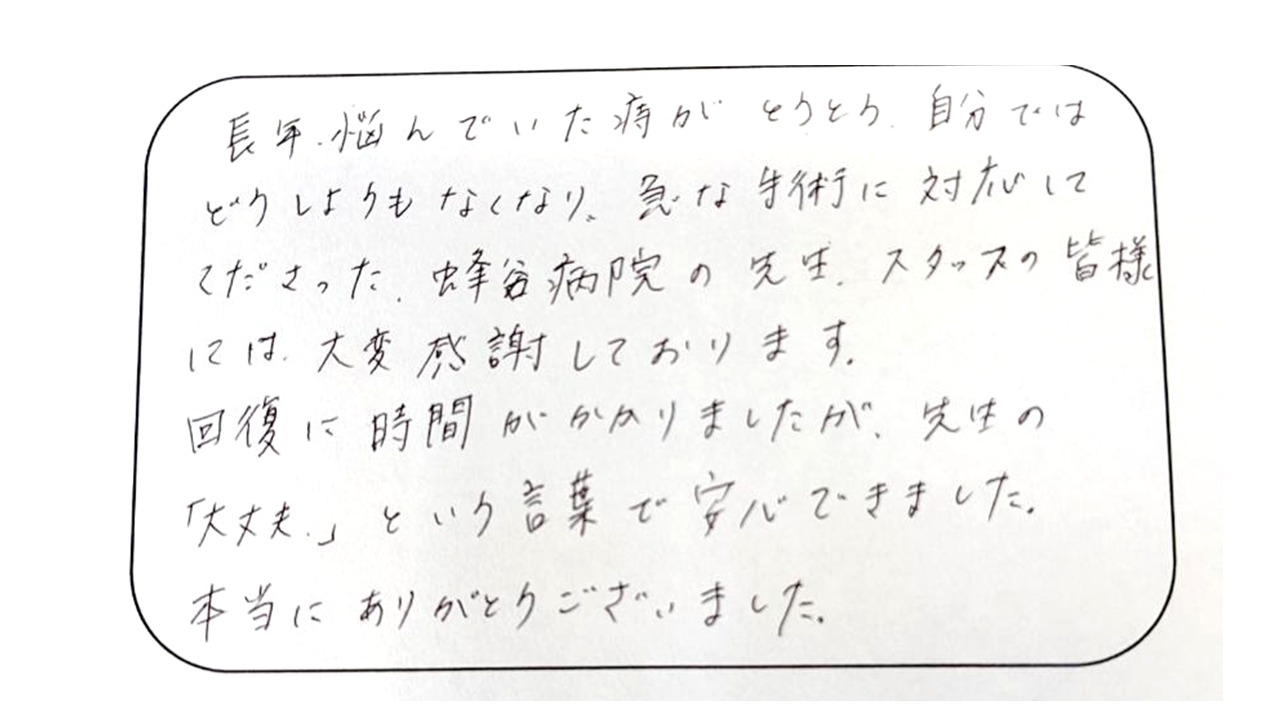 長年、悩んでいた痔がとうとう、自分では
どうしようもなくなり、急な手術に対応して
くださった、蜂谷病院の先生、スタッフの皆様
には、大変感謝しております。
回復に時間がかかりましたが、先生の
「大丈夫。」という言葉で安心できました。
本当にありがとうございました。